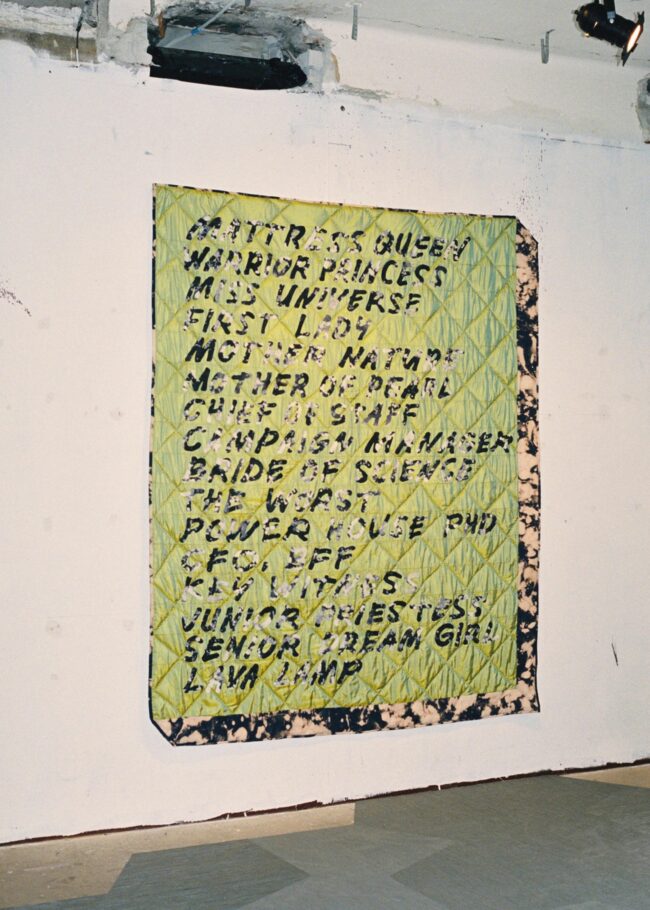 MATTRESS QUEEN
WARRIOR PRINCESS
MISS UNIVERSE
FIRST LADY
MOTHER NATURE
MOTHER OF PEARL
CHIEF OF STAFF
CAMPAIGN MANAGER
BRIDE OF SCIENCE
THE WORST
POWER HOUSE PHD
CFO, BFF
KEY WITNESS
JUNIOR PRIESTESS
SENIOR DREAM GIRL
LAVA LAMP